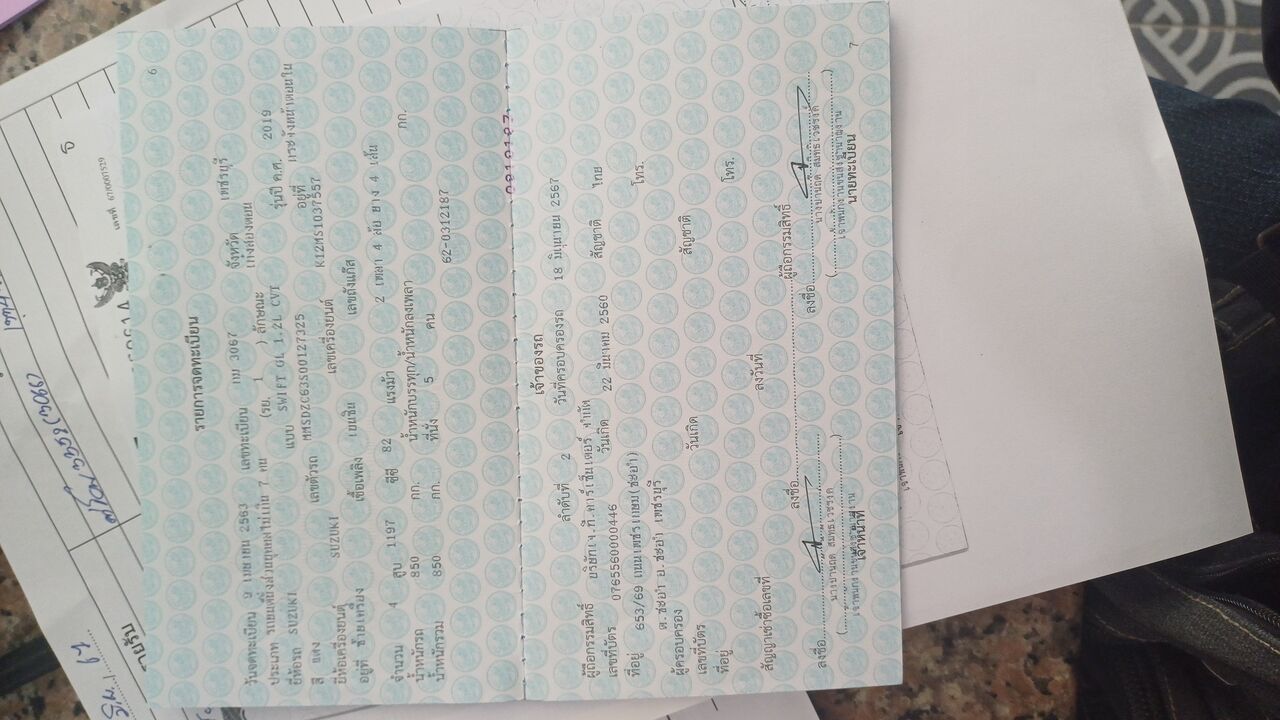 6
รายการจดทะเบียน
วันจดทะเบียน 9 เมษายน 2563 เลขทะเบียน กม 3067 จังหวัด เพชรบุรี
ประเภท รถยนต์นั่งส่วนบุคคลไม่เกิน 7 คน (รย. 1 ) ลักษณะ เก๋งสองตอน
ยี่ห้อรถ SUZUKI แบบ SWIFT GL 1.2L CVT รุ่นปี ค.ศ. 2019
สี แดง เลขตัวรถ MMSDZC63S00127325 อยู่ที่
ยี่ห้อเครื่องยนต์ SUZUKI เลขเครื่องยนต์ K12MS1037557
อยู่ที่ เชื้อเพลิง เบนซิน เลขถังแก๊ส
จำนวน 4 สูบ 1197 ซีซี 82 แรงม้า 2 เพลา 4 ล้อ ยาง 4 เส้น
น้ำหนักรถ 850 กก. น้ำหนักบรรทุก/น้ำหนักลงเพลา กก.
น้ำหนักรวม 850 กก. ที่นั่ง 5 คน 62-0312187
7
เจ้าของรถ
ลำดับที่ 2 วันที่ครอบครองรถ 18 มิถุนายน 2567
ผู้ถือกรรมสิทธิ์ บริษัทเจ.ที.คาร์เซ็นเตอร์ จำกัด
เลขที่บัตร 0765560000446 วันเกิด 22 มีนาคม 2560 สัญชาติ ไทย
ที่อยู่ 653/69 ถนนเพชรเกษม(ชะอำ) โทร.
ต.ชะอำ อ.ชะอำ เพชรบุรี
ผู้ครอบครอง
เลขที่บัตร วันเกิด สัญชาติ
ที่อยู่ โทร.
สัญญาเช่าซื้อเลขที่ ลงวันที่
ลงชื่อ ผู้ถือกรรมสิทธิ์
ลงชื่อ ลงชื่อ
เจ้าหน้าที่ นายทะเบียน
เลขที่ 6700001529